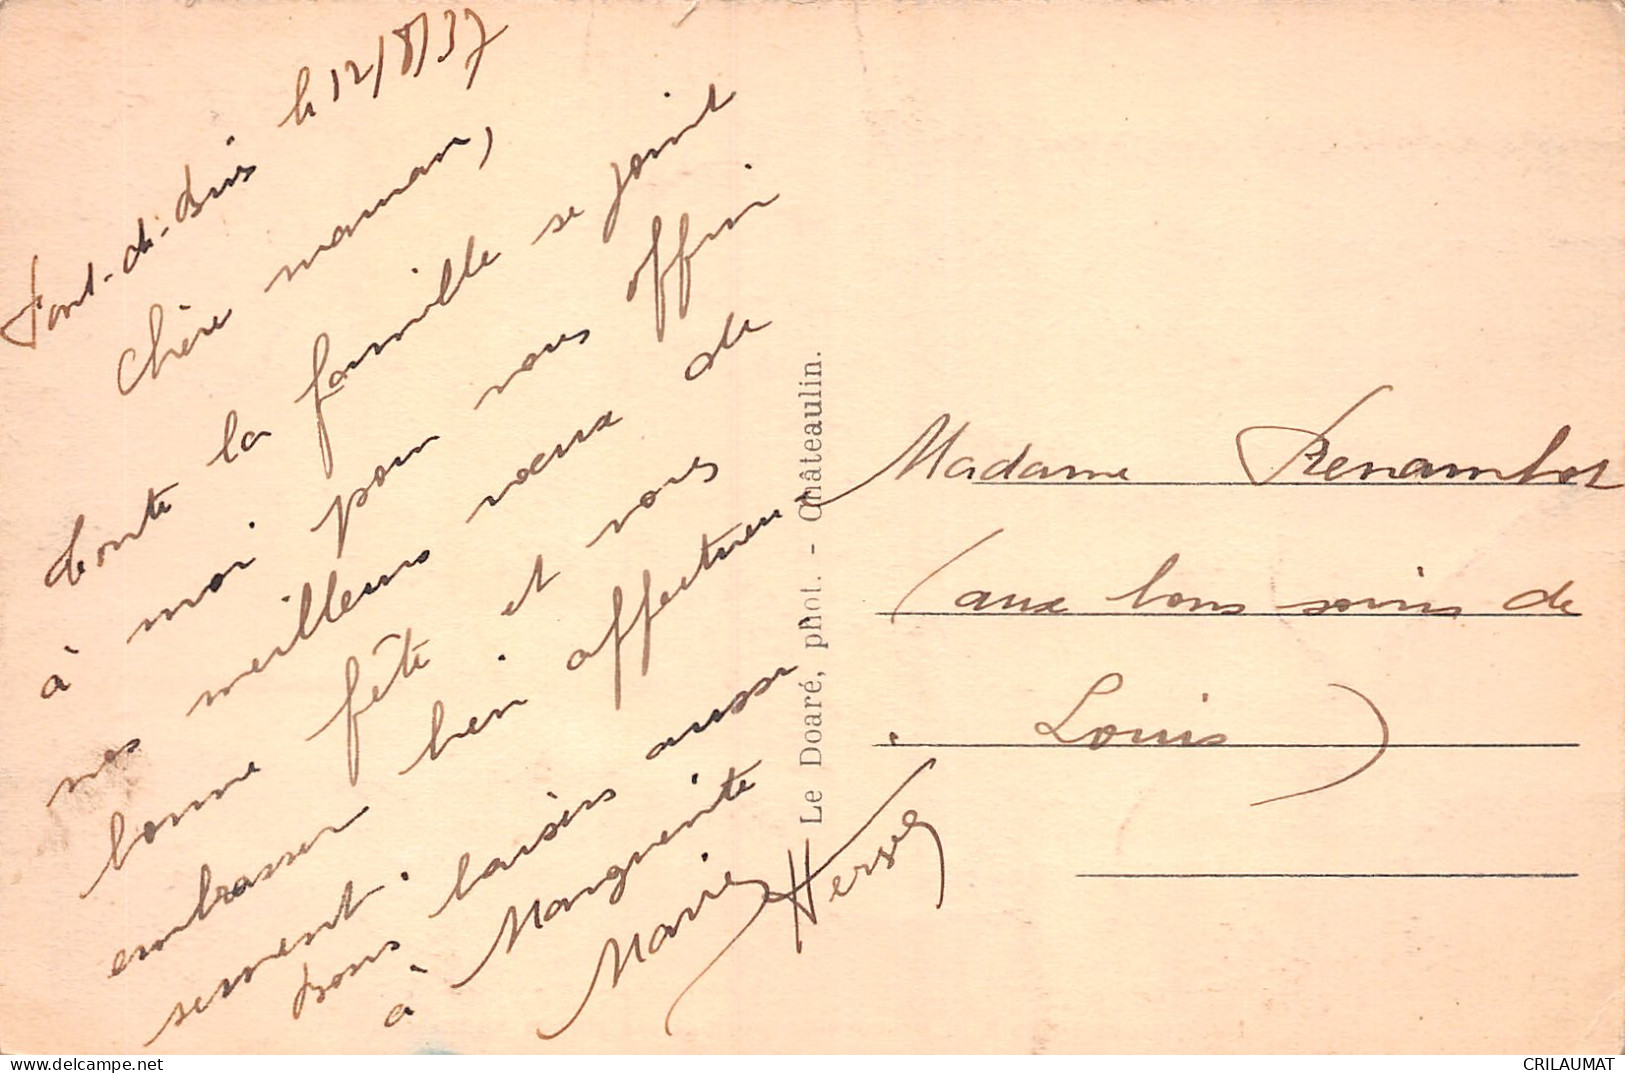 Pont-de-Buis le 12/8/37
Chère maman,
toute la famille se joint
à moi pour vous offrir
nos meilleurs vœux de
bonne fête et vous
embrasser bien affectueu
sement. Bons baisers aussi
à Marguerite
Marie Hervé
Le Doaré, phot. - Châteaulin.
Madame Kerambos
(aux bons soins de
Louis)
CRILAUMAT